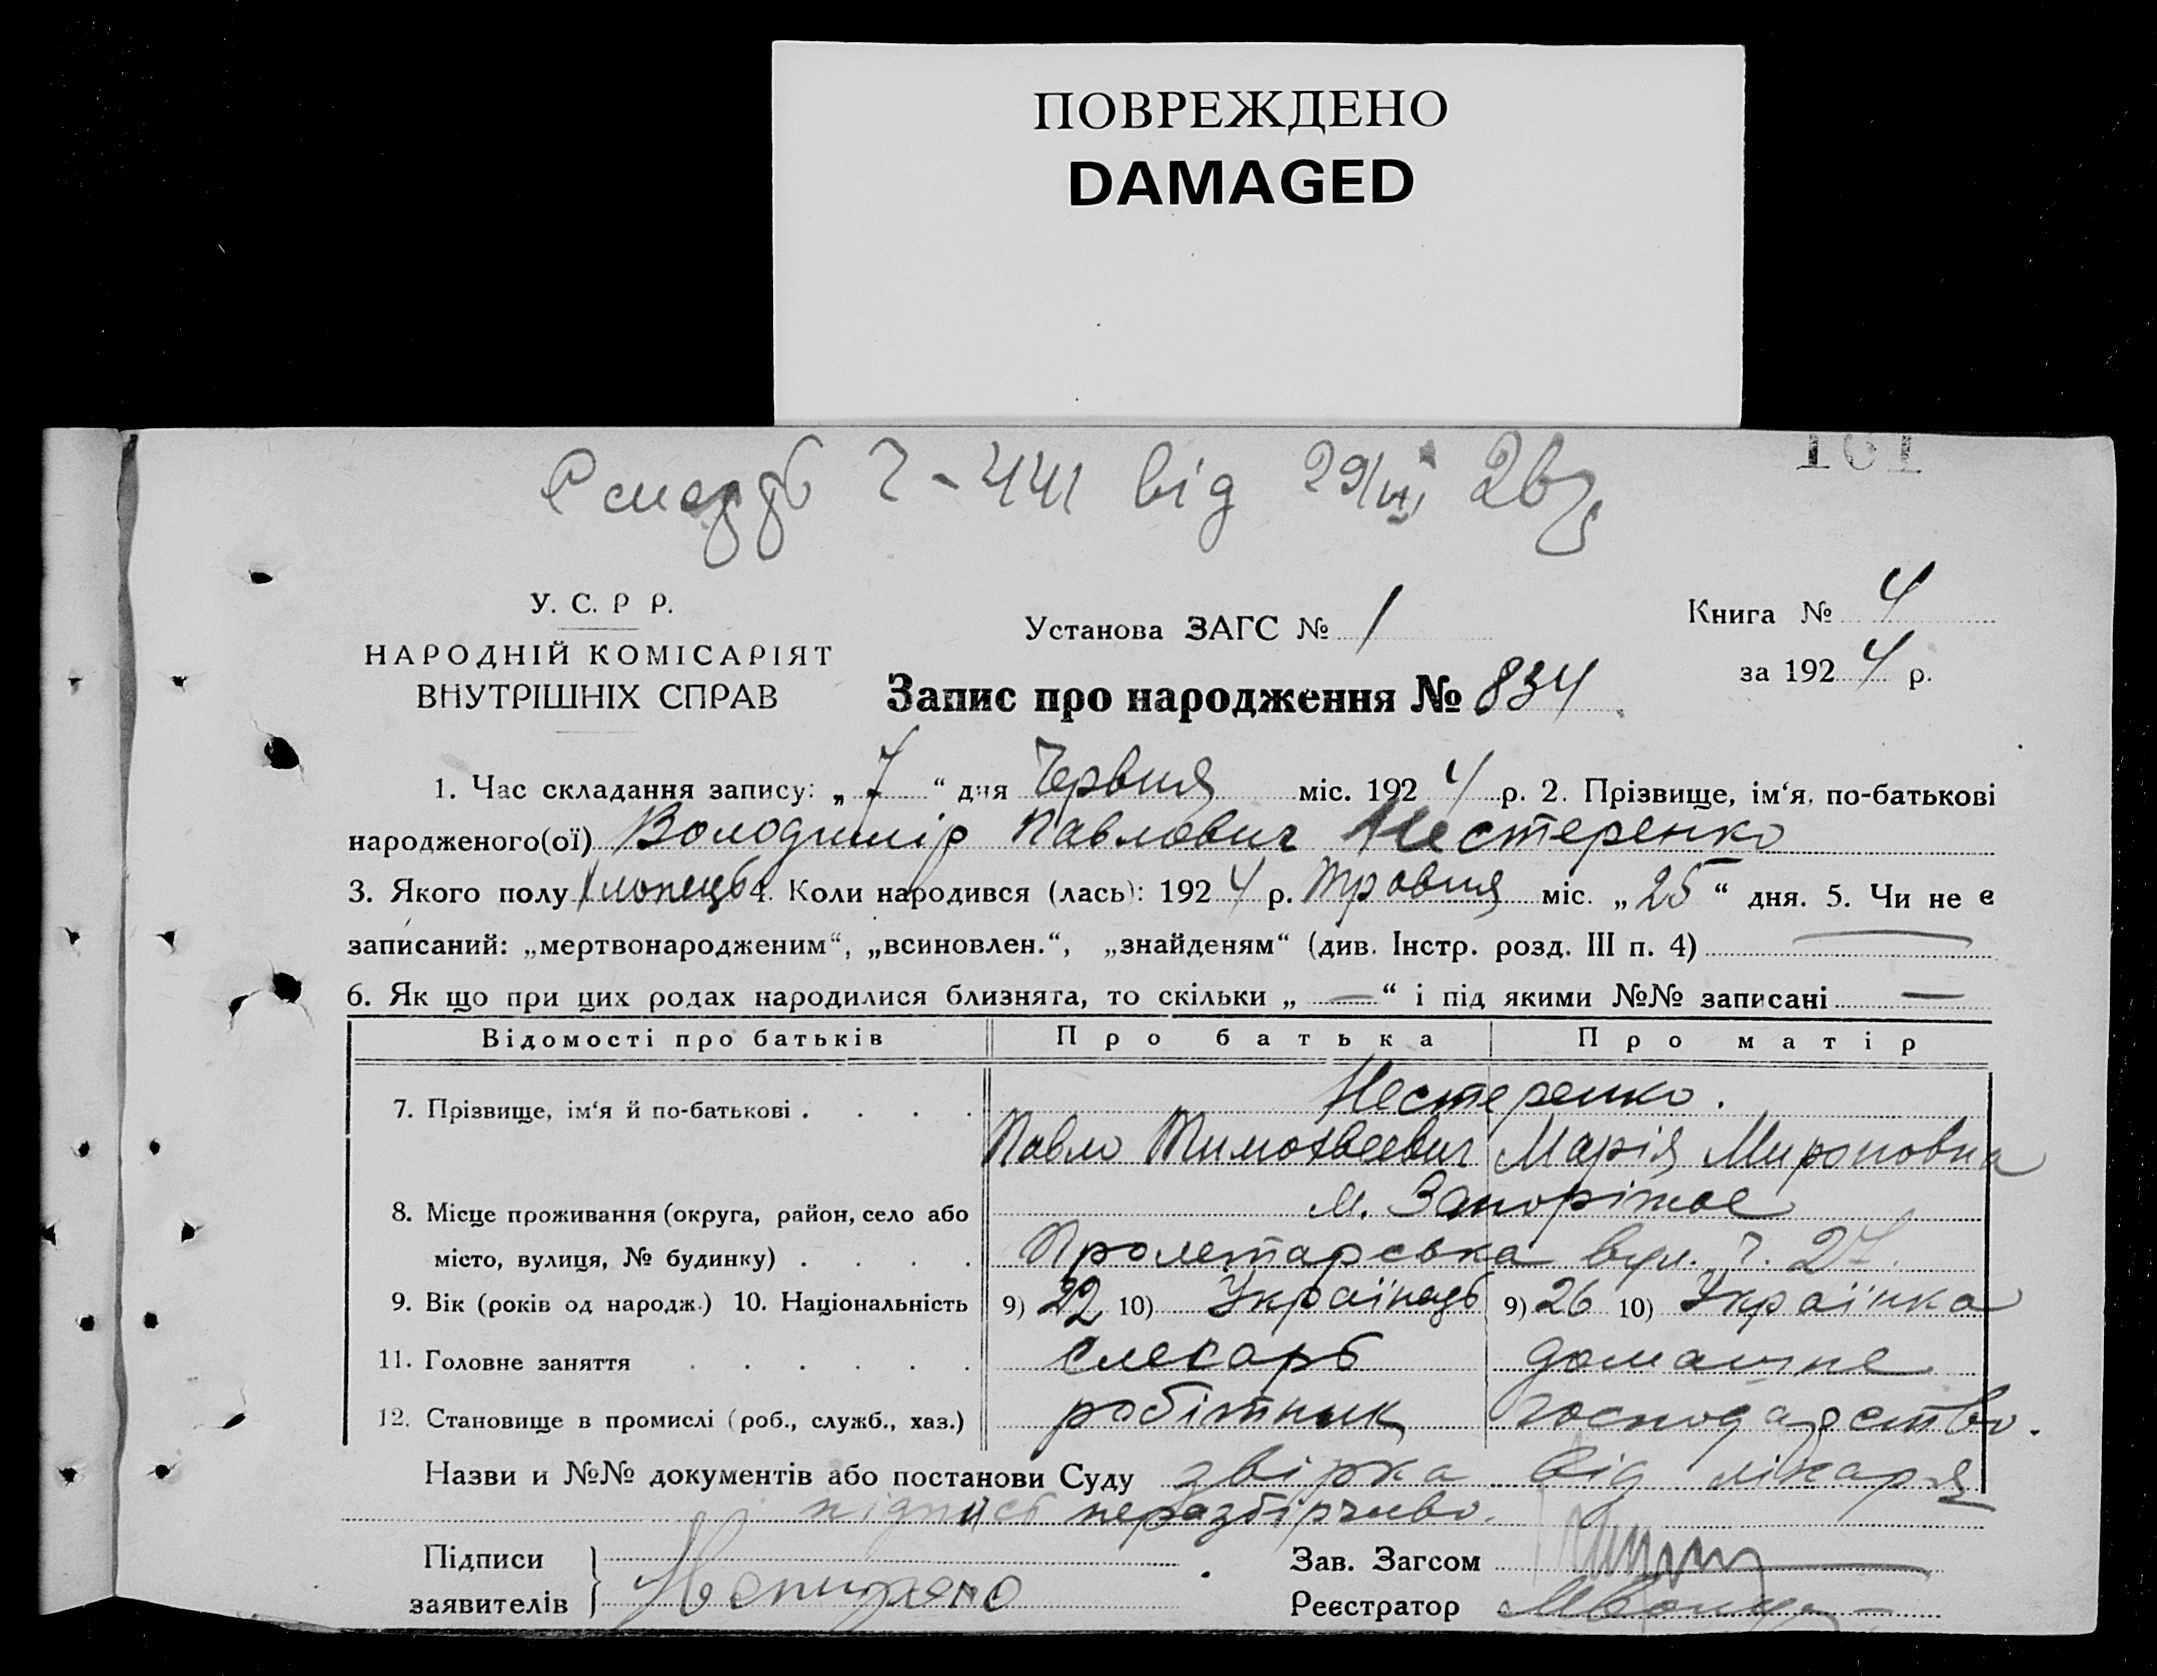 ПОВРЕЖДЕНО
DAMAGED
161
441 від 29/VII 26 р
У. С. Р Р.
НАРОДНІЙ КОМІСАРІЯТ
ВНУТРІШНІХ СПРАВ
Установа ЗАГС № 1
Книга № 4
за 1924 р.
Запис про народження № 834
1. Час складання запису: „7“ дня Червня міс. 1924 р. 2. Прізвище, ім‘я, по-батькові
народженого(ої) Володимір Павлович Нестеренко
3. Якого полу Хлопець 4. Коли народився (лась): 1924 р. Травня міс. „25“ дня. 5. Чи не є
записаний: „мертвонародженим“, „всиновлен.“, „знайденям“ (див. Інстр. розд. III п. 4) —
6. Як що при цих родах народилися близнята, то скільки „—“ і під якими №№ записані —
Відомості про батьків Про батька Про матір
7. Прізвище, ім‘я й по-батькові . . . . Нестеренко.
Павло Тимофеевич Марія Мироновна
8. Місце проживання (округа, район, село або м. Запоріжжє
місто, вулиця, № будинку) . . . . Пролетарська вул. ч. 27.
9. Вік (років од народж.) 10. Національність 9) 32 10) Українець 9) 26 10) Українка
11. Головне заняття . . . . . . слесарь домашне
12. Становище в промислі (роб., служб., хаз.) робітник господарство.
Назви и №№ документів або постанови Суду звірка від лікаря
підпись неразбірчиво.
Підписи
заявителів
Зав. Загсом
Реєстратор